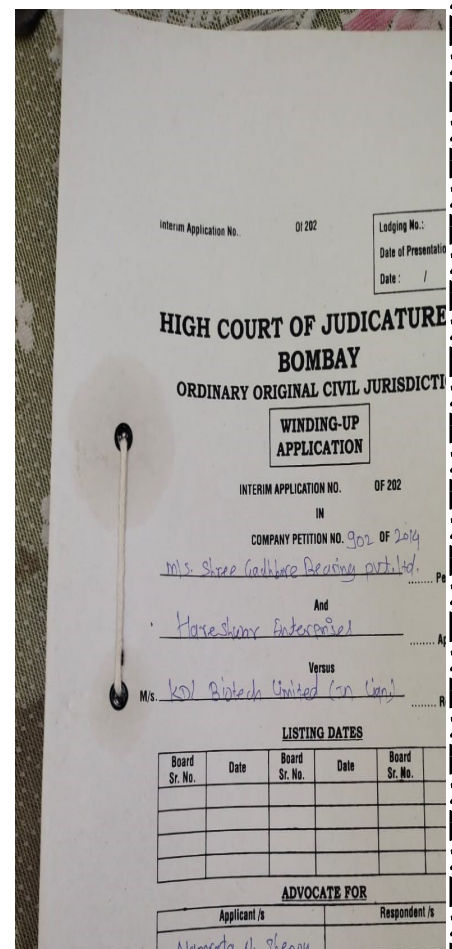 Interim Application No. Of 202
Lodging No.:
Date of Presentatio
Date : /
HIGH COURT OF JUDICATURE
BOMBAY
ORDINARY ORIGINAL CIVIL JURISDICTI
WINDING-UP
APPLICATION
INTERIM APPLICATION NO. OF 202
IN
COMPANY PETITION NO. 902 OF 2014
M/s. Shree Bearing pvt. ltd. ........ Pe
And
Enterprises ........ Ap
Versus
M/s. KDL Biotech Limited (In Liqn.) ........ R
LISTING DATES
Board Sr. No. Date Board Sr. No. Date Board Sr. No.
ADVOCATE FOR
Applicant /s Respondent /s
Namrata Shenoy